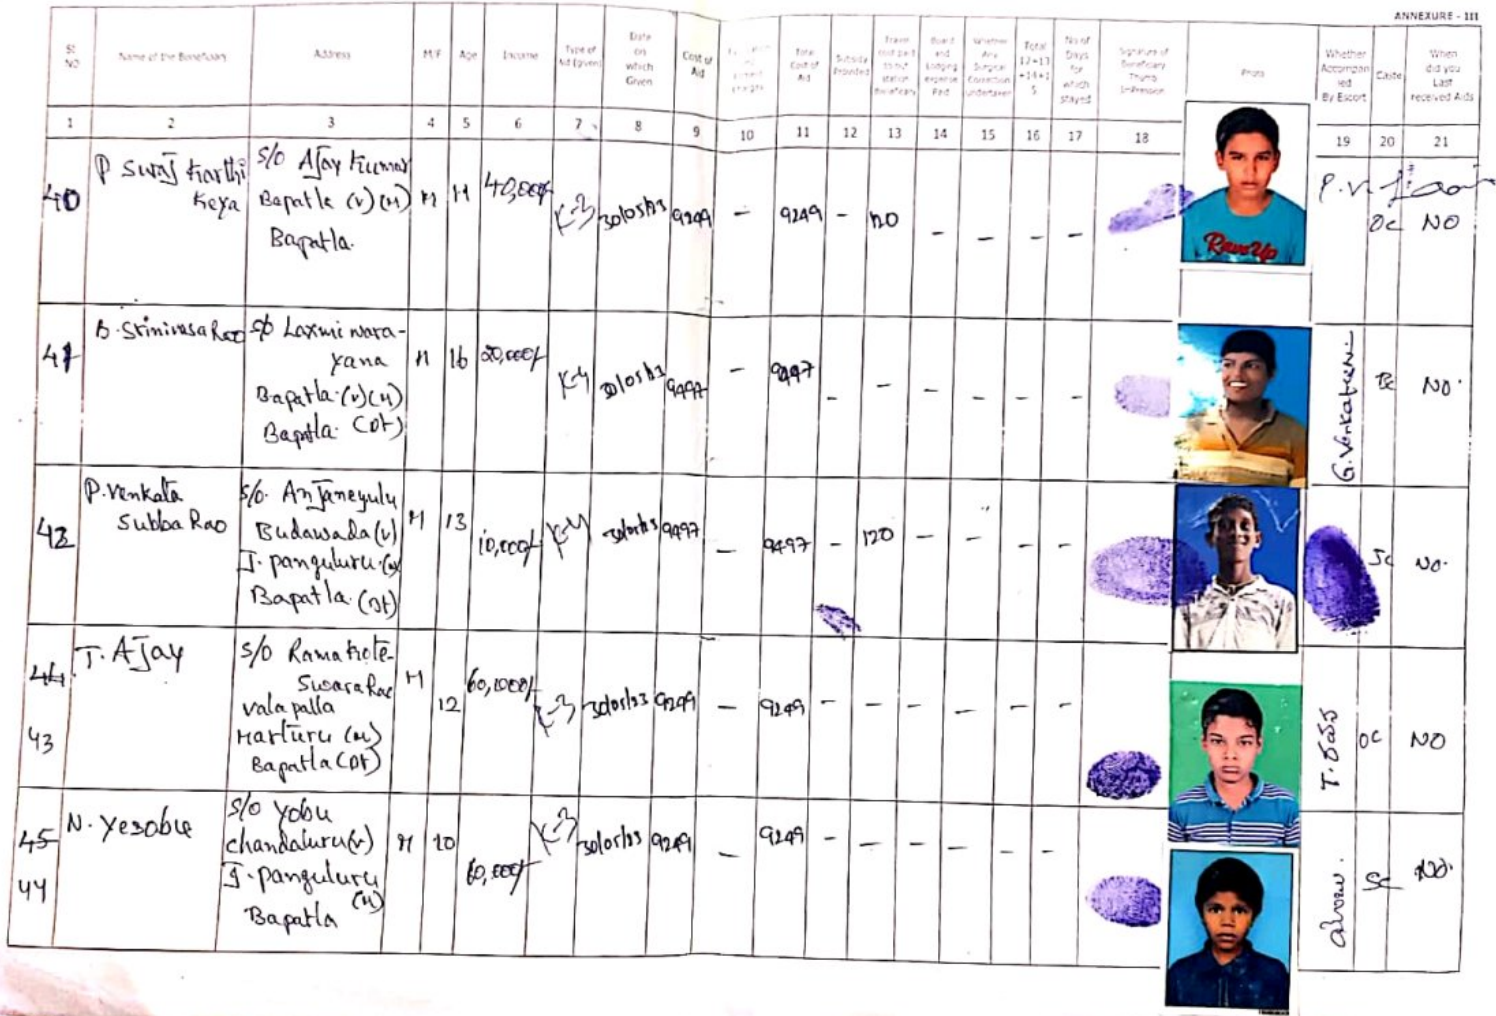 ANNEXURE - III
Sl NO
Name of the Beneficiary
Address
M/F
Age
Income
Type of Aid (given)
Date on which Given
Cost of Aid
Total Cost of Aid
Subsidy Provided
Travel cost paid to out station Beneficiary
Board and Lodging expense Paid
Whether Any Surgical Correction undertaken
Total 12+13+14+15
No of Days for which stayed
Signature of Beneficiary Thumb Impression
Photo
Whether Accompanied By Escort
Caste
When did you Last received Aids
1 2 3 4 5 6 7 8 9 10 11 12 13 14 15 16 17 18 19 20 21
40 P Suraj Karthi Keya
S/o Ajay Kumar
Bapatla (v) (M)
Bapatla.
M 40,000/- K-3 30/05/23 9249 - 9249 - - - - -
OC NO
41 B. Srinivasa Rao
S/o Laxmi nara-
yana
Bapatla (v) (M)
Bapatla (Dt)
M 16 20,000/- K-4 30/05/23 9497 - 9497 - - - - - -
NO.
42 P. Venkata
Subba Rao
S/o. Anjaneyulu
Budawada (v)
J. panguluru (M)
Bapatla (Dt)
M 13 10,000/- K-4 30/05/23 9497 - 9497 - 120 - - - -
NO.
44 43 T. Ajay
S/o Ramakote-
Swara Rao
valapalla
Marturu (M)
Bapatla (Dt)
M 12 K-3 30/05/23 9249 - 9249 - - - - - -
T. రమ OC NO
45 44 N. Yesobu
S/o Yobu
chandaluru (v)
J. panguluru
(M)
Bapatla
M 10 60,000/- K-3 30/05/23 9249 - 9249 - - - - - -
SC NO.